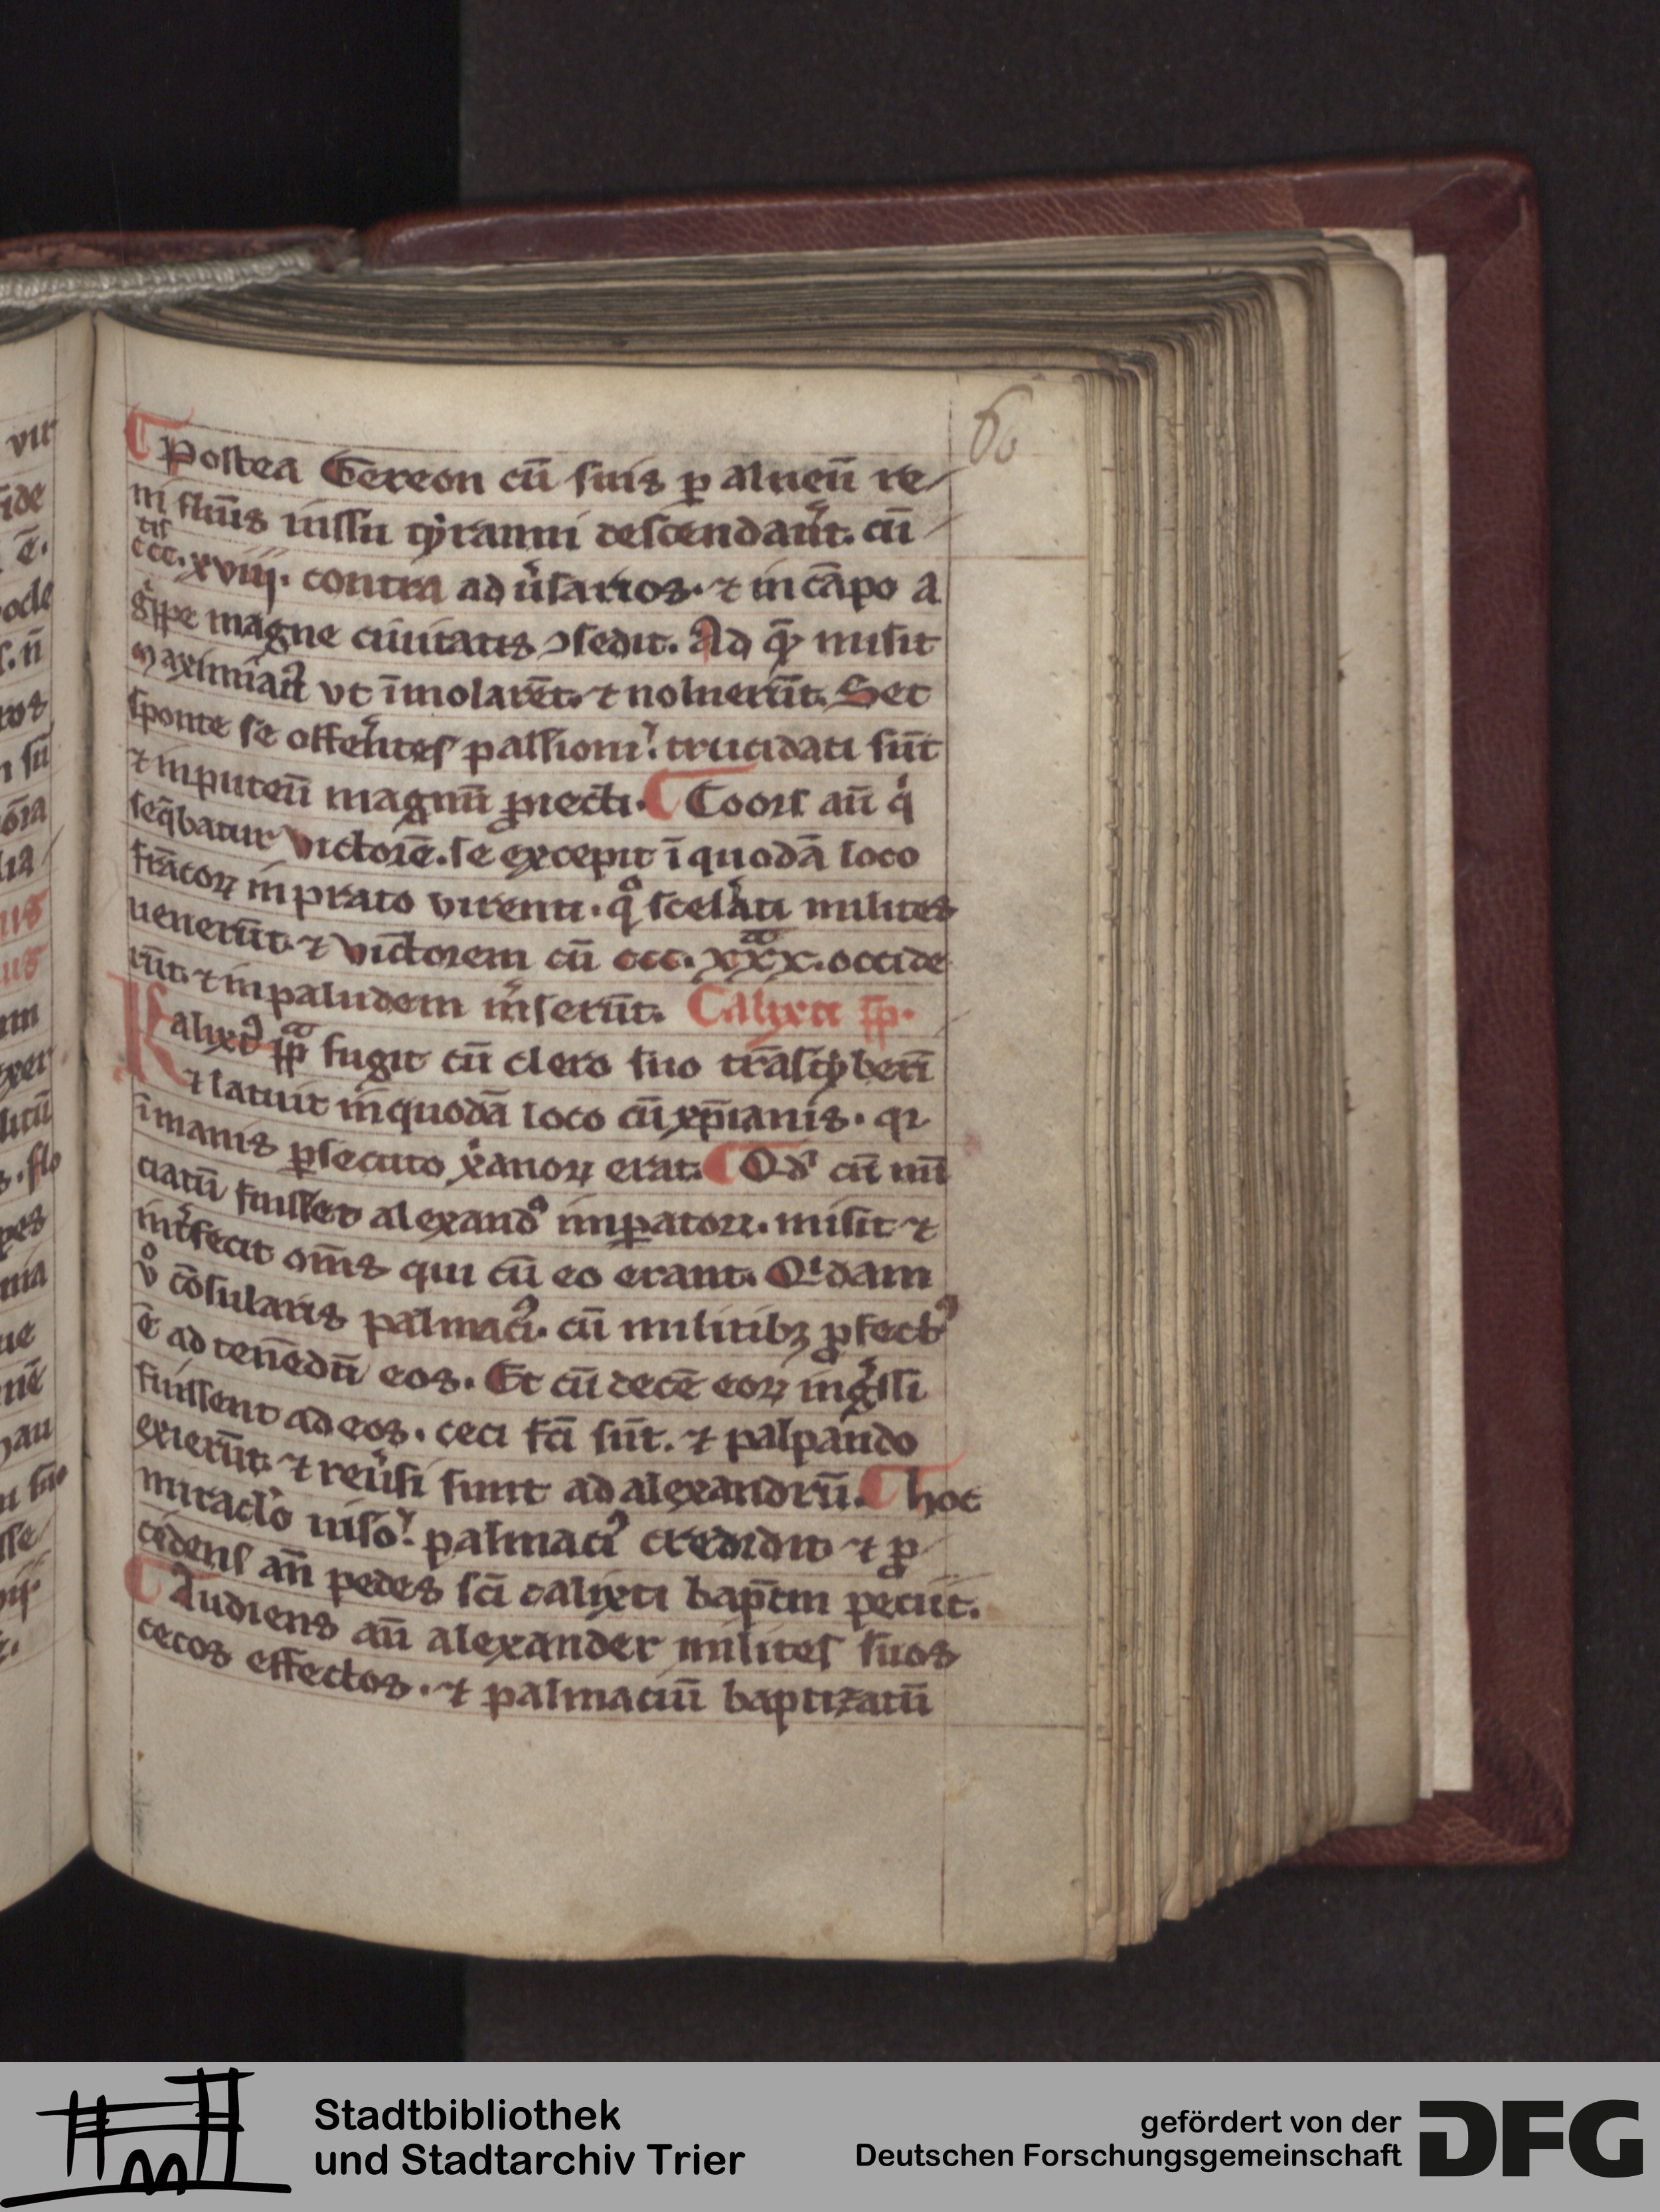 60
Postea Gereon cū suis ꝑ alueū re
ni fluīs iussu tẏranni descendaūt. cū
tis
ccc. xviij. contra aduͥsarios. ⁊ in cāpo a
gͥppe magne ciuitatis ꝯsedit. Ad qͥ misit
Maximianꝰ vt īmolarēt. ⁊ noluerūt. Set
sponte se offerētes passioni. trucidati sūt
⁊ in puteū magnū ꝓiecti. Coors aū q̇
seq̄batur Victorē. se excepit ī quodā loco
frācoꝝ in prato virenti. qͦ scelāti milites
uenerūt. ⁊ Victorem cū ccc. xxͣx. occide
rūt. ⁊ in paludem mͥserūt. Calyxti p̄p.
Kalixtꝰ p̄pͣ fugit cū clero suo trāstẏberī
⁊ latuit in quodā loco cū xp̄ianis. qꝛ
īmanis ꝑsecutio xͥanoꝝ erat. Qd̕ cū nū
ciatū fuisset alexandͦ imꝑatori. misit ⁊
int̕fecit om̄s qui cū eo erant. Qͥdam
vͦ cōsularis palmaciꝰ. cū militibꝫ ꝓfectꝰ
ē ad tenēdū eos. Et cū decē eoꝝ ingͥssi
fuissent ad eos. ceci fc̄i sūt. ⁊ palpando
exierūt. ⁊ reuͥsi sunt ad alexandrū. hoc
miraclo̕ uiso. palmaciꝰ credidit ⁊ ꝓ
cidens añ pedes sc̄i calixti bap̄tm peciit.
Audiens aū alexander milites suos
cecos effectos. ⁊ palmaciū baptizatū
Stadtbibliothek
und Stadtarchiv Trier
gefördert von der
Deutschen Forschungsgemeinschaft
DFG